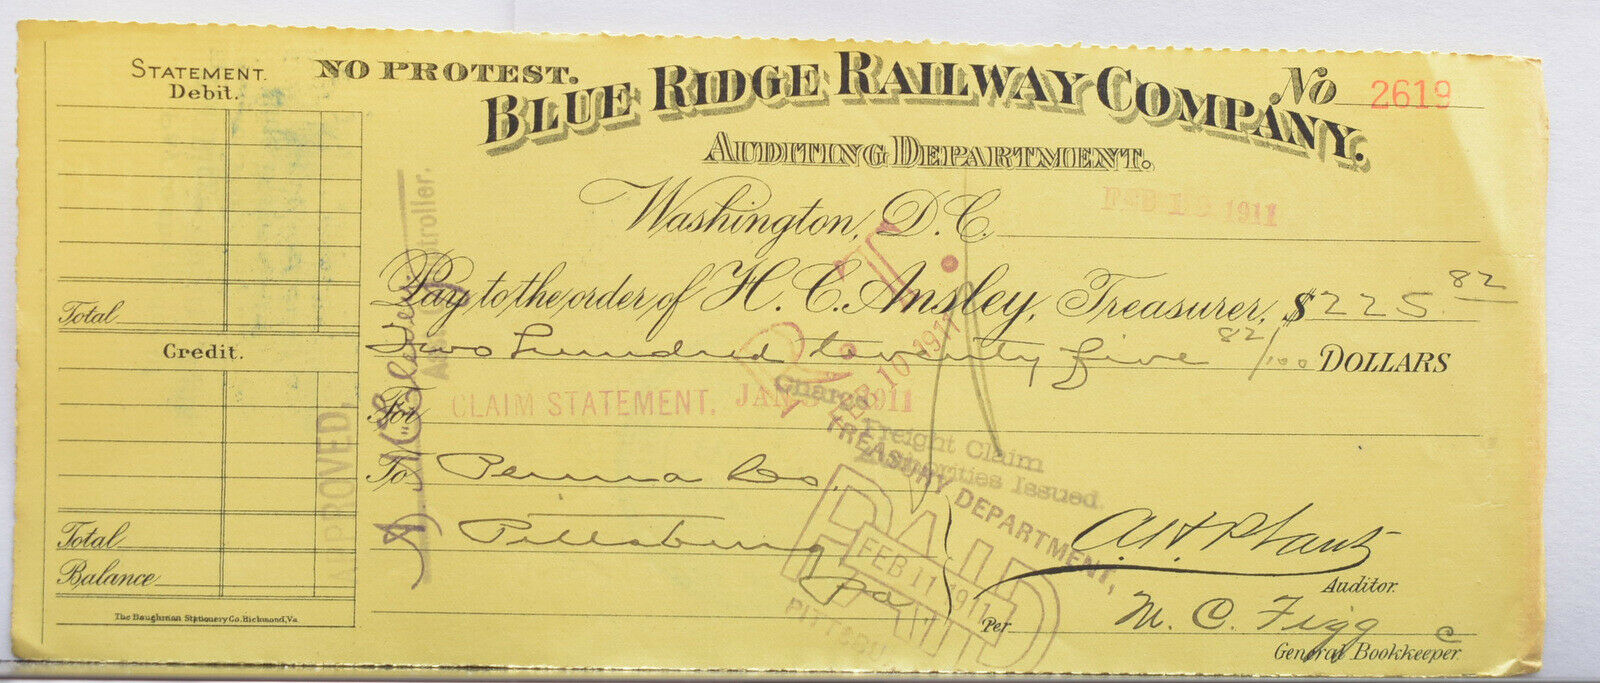 STATEMENT.
Debit.
Total
Credit.
Total
Balance
The Baughman Stationery Co. Richmond, Va
NO PROTEST.
No 2619
BLUE RIDGE RAILWAY COMPANY.
AUDITING DEPARTMENT.
Washington, D.C. FEB 1911
Pay to the order of H. C. Ansley, Treasurer, $ 225.82
Two hundred twenty five 82/100 DOLLARS
For CLAIM STATEMENT. JAN 1911
To Penna Co.
Pittsburg
Pa
APPROVED,
Asst. Controller.
FEB 10 1911
TREASURY DEPARTMENT,
Charge
Freight Claim
Authorities Issued.
PAID
FEB 11 1911
PITTSBU
Auditor.
Per M. C. Figg
General Bookkeeper.